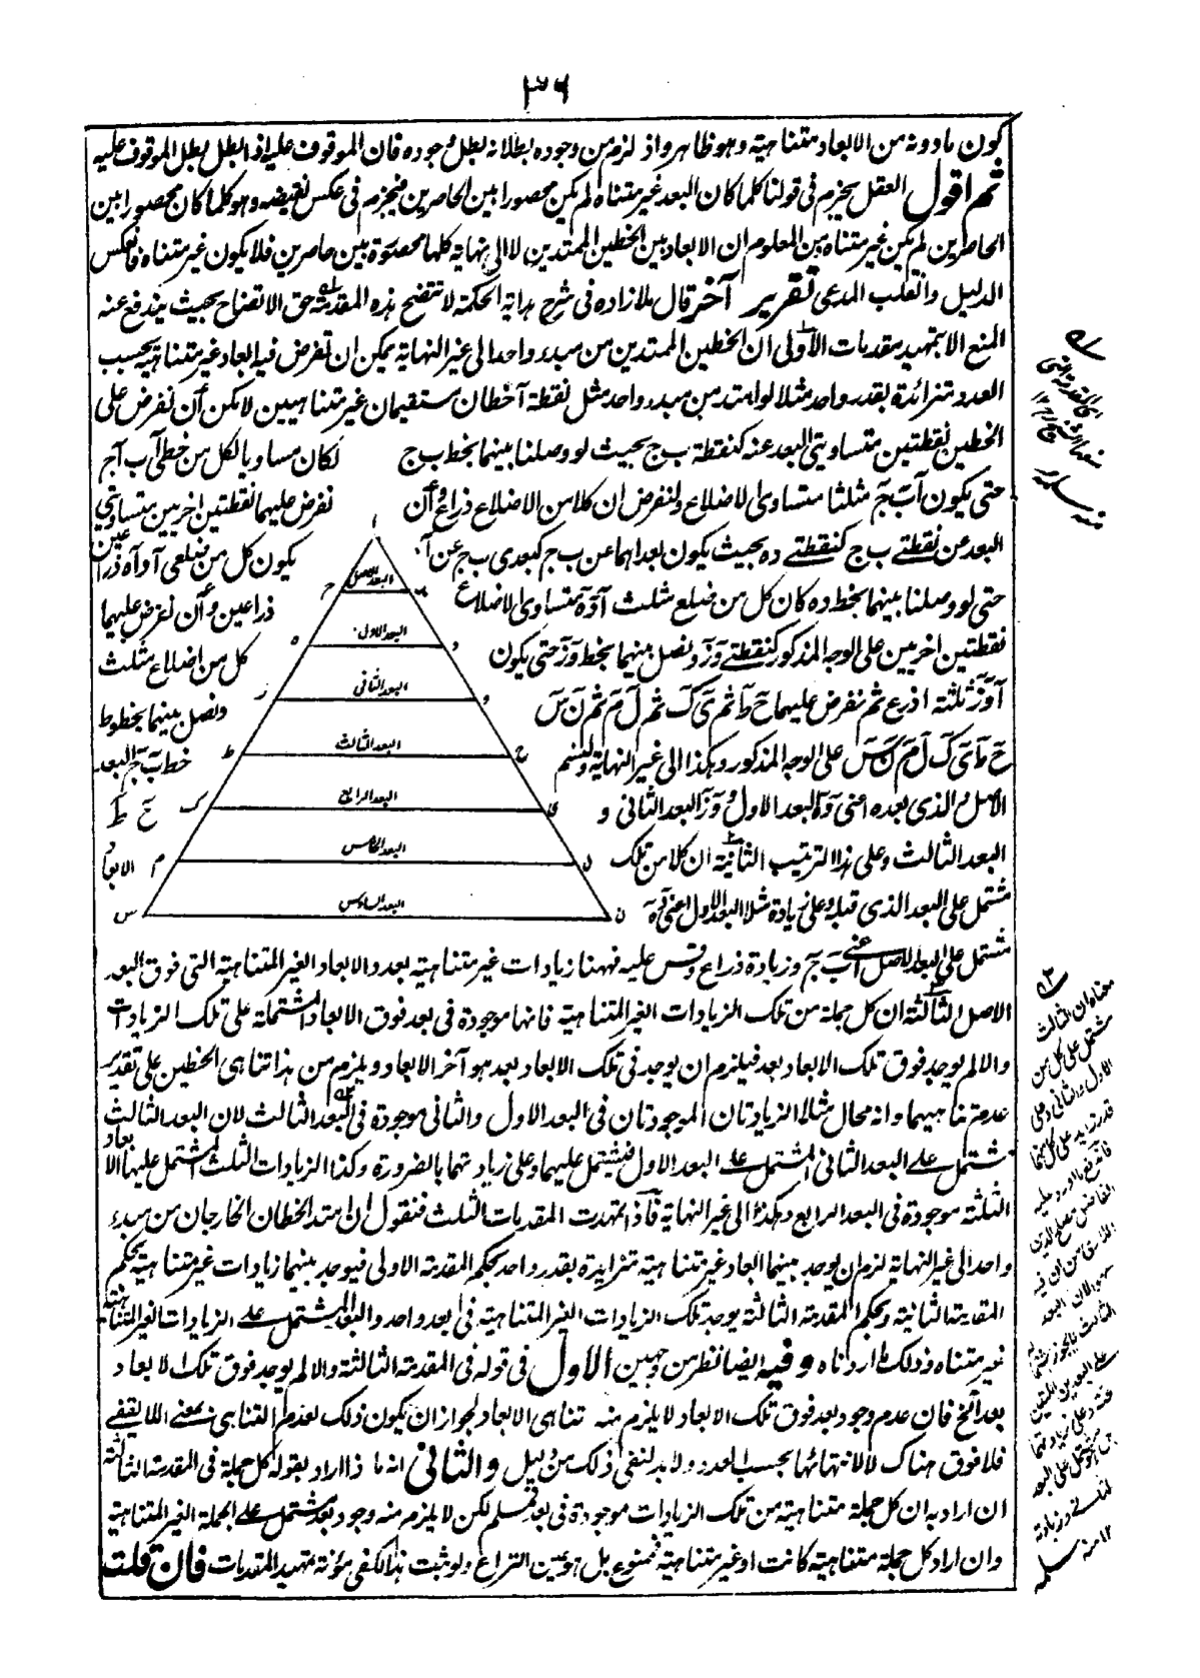 ٣٦
كون مادونه من الابعاد متناهية وهو ظاهر واذ لزم من وجوده بطلانه بطل وجوده فان الموقوف عليه اذا بطل بطل الموقوف عليه
ثم اقول العقل يجزم فى قولنا كلما كان البعد غير متناه لم يكن محصورا بين الحاصرين فيجزم فى عكس نقيضه وهو كلما كان محصورا بين
الحاصرين لم يكن غير متناه ومن المعلوم ان الابعاد بين الخطين الممتدين لا الى نهاية كلها محصورة بين حاصرين فلا يكون غير متناه فانعكس
الدليل وانقلب المدعى تقرير آخر قال ملا زاده فى شرح هداية الحكمة لا تتضح هذه المقدمة حق الاتضاح بحيث يندفع عنه
المنع الا بتمهيد مقدمات الاولى ان الخطين الممتدين من مبدء واحد الى غير النهاية يمكن ان تفرض فيها ابعاد غير متناهية بحسب
العدد متزائدة بقدر واحد مثلا لو امتد من مبدء واحد مثل نقطة آ خطان مستقيمان غير متناهيين لامكن أن نفرض على
الخطين نقطتين متساويتى البعد عنه كنقطة ب ج بحيث لو وصلنا بينهما بخط ب ج لكان مساويا لكل من خطى آب آج
حتى يكون آب ج مثلثا متساوى الاضلاع ولنفرض ان كلا من الاضلاع ذراع وأن نفرض عليهما نقطتين اخريين متساويتى
البعد عن نقطتے ب ج كنقطتے ده بحيث يكون بعداهما عن ب ج كبعدى ب ج عن آ يكون كل من ضلعى آد آه ذراعين
حتى لو وصلنا بينهما بخط ده كان كل من ضلع مثلث آدة متساوى الاضلاع ذراعين وأن نفرض عليهما
نقطتين اخريين على الوجه المذكور كنقطتے وز ونصل بينهما بخط وز حتى يكون كل من اضلاع مثلث
آوز ثلثة اذرع ثم نفرض عليهما ح ط ثم ى ك ثم ل م ثم ن س ونصل بينهما بخطوط
ح ط ى ك ل م ن س على الوجه المذكور وهكذا الى غير النهاية ولنسم خط ب ج البعد
الاصل والذى بعده اعنى ده البعد الاول و وز البعد الثانى و ح ط
البعد الثالث وعلى هذا الترتيب الثانية ان كلا من تلك الابعاد
مشتمل على البعد الذى قبله وعلى زيادة مثلا البعد الاول اعنى ده
ا
البعد الاصل
ب
ج
البعد الاول
د
ه
البعد الثانى
و
ز
البعد الثالث
ح
ط
البعد الرابع
ى
ك
البعد الخامس
ل
م
البعد السادس
ن
س
مشتمل على البعد الاصل اعنے ب ج وزيادة ذراع وقس عليه فههنا زيادات غير متناهية بعدد الابعاد الغير المتناهية التى فوق البعد
الاصل الثالثة ان كل جملة من تلك الزيادات الغير المتناهية فانها موجودة فى بعد فوق الابعاد المشتملة على تلك الزيادات
والا لم يوجد فوق تلك الابعاد بعد فيلزم ان يوجد فى تلك الابعاد بعد هو آخر الابعاد ويلزم من هذا تناهى الخطين على تقدير
عدم تناهيهما وانه محال مثلا الزيادتان الموجودتان فى البعد الاول والثانى موجودة فى البعد الثالث لان البعد الثالث
مشتمل على البعد الثانى المشتمل على البعد الاول فيشتمل عليهما وعلى زيادتهما بالضرورة وكذا الزيادات الثلث المشتمل عليها الابعاد
الثلثة موجودة فى البعد الرابع وهكذا الى غير النهاية فاذا تمهدت المقدمات الثلث فنقول ان امتد الخطان الخارجان من مبدء
واحد الى غير النهاية لزم ان يوجد بينهما ابعاد غير متناهية متزايدة بقدر واحد بحكم المقدمة الاولى فيوجد بينهما زيادات غير متناهية بحكم
المقدمة الثانية وبحكم المقدمة الثالثة يوجد تلك الزيادات الغير المتناهية فى بعد واحد والبعد المشتمل على الزيادات الغير المتناهية
غير متناه وذلك ما اردناه وفيه ايضا نظر من وجهين الاول فى قوله فى المقدمة الثالثة والا لم يوجد فوق تلك الابعاد
بعد آلخ فان عدم وجود بعد فوق تلك الابعاد لا يلزم منه تناهى الابعاد لجواز ان يكون ذلك لعدم التناهى بمعنى اللايقفے
فلا فوق هناك لا لانتهائها بحسب العدد ولا بد لنفى ذلك من دليل والثانى انه ما ذا اراد بقوله كل جملة فى المقدمة الثالثة
ان اراد به ان كل جملة متناهية من تلك الزيادات موجودة فى بعد فمسلم لكن لا يلزم منه وجود بعد مشتمل على الجملة الغير المتناهية
وان اراد كل جملة متناهية كانت او غير متناهية فممنوع بل هو عين النزاع ولو ثبت هذا لكفى مؤنة تمهيد المقدمات فان قلت
معناه ان الثالث
مشتمل على كل من
الاول والثانى وعلى